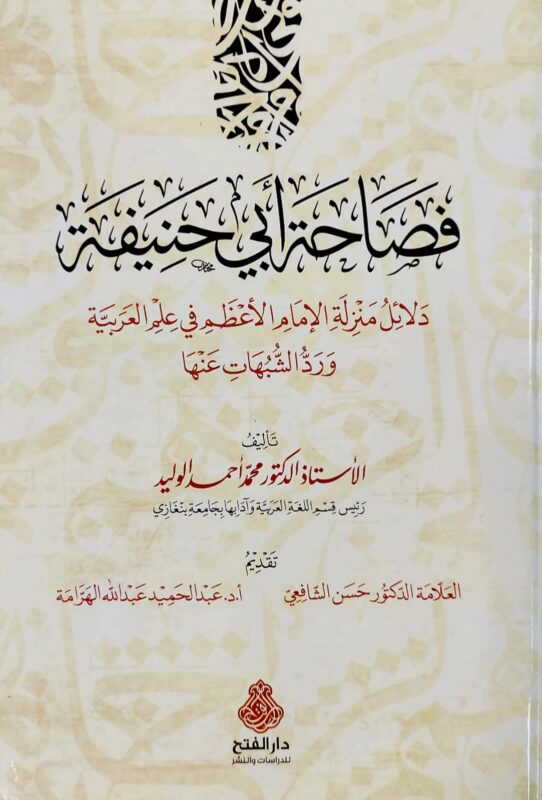 فَصَاحَة أَبي حَنِيفَة
دَلائِلُ مَنْزِلَةِ الإمَامِ الأَعْظَمِ في عِلْمِ العَرَبيَّة
وَرَدُّ الشُّبُهَاتِ عَنْهَا
تَأليْفُ
الأستاذ الدكتور محمّد أحمد الوليد
رَئِيس قِسْمِ اللغَةِ العَرَبيَّةِ وَآدَابِهَا بِجَامِعَةِ بنْغَازِي
تَقدِيْمُ
العَلّامَة الدّكتُور حَسَن الشَّافِعيّ أ.د. عَبْدالحَمِيْد عَبْدالله الهَرَّامَة
دار الفتح
للدراسات والنشر